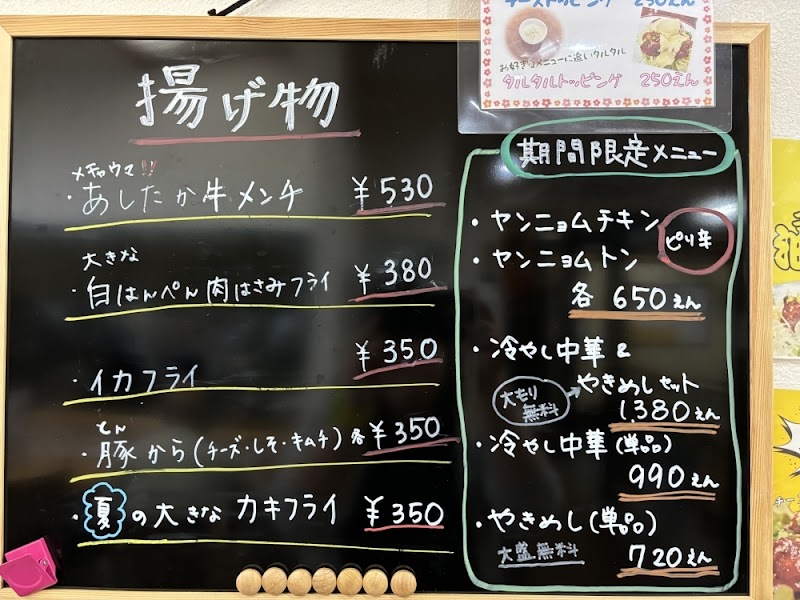 チーズトッピング 250えん
お好きなメニューに追いタルタル
タルタルトッピング 250えん
揚げ物
メチャウマ!!
・あしたか牛メンチ ¥530
大きな
・白はんぺん肉はさみフライ ¥380
・イカフライ ¥350
とん
・豚から(チーズ・しそ・キムチ)各¥350
・夏の大きなカキフライ ¥350
期間限定メニュー
・ヤンニョムチキン
・ヤンニョムトン
ピリ辛
各 650えん
・冷やし中華&
やきめしセット
大もり
無料
1,380えん
・冷やし中華(単品)
990えん
・やきめし(単品)
大盛無料 720えん